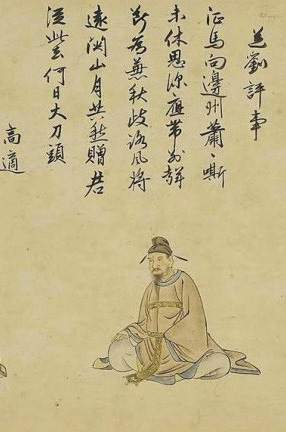 送劉評事
征馬向邊州蕭〻嘶
未休思深應帶別聲
斷為兼秋歧路風將
遠関山月共愁贈君
從此去何日大刀頭
高適